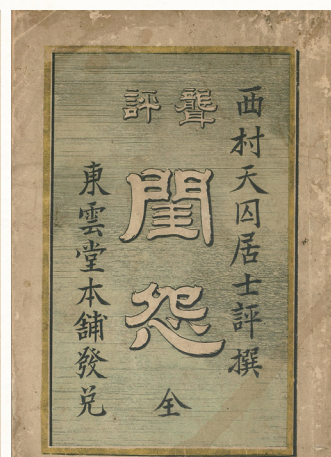 西村天囚居士評撰
聾評
閨怨
全
東雲堂本舖發兌